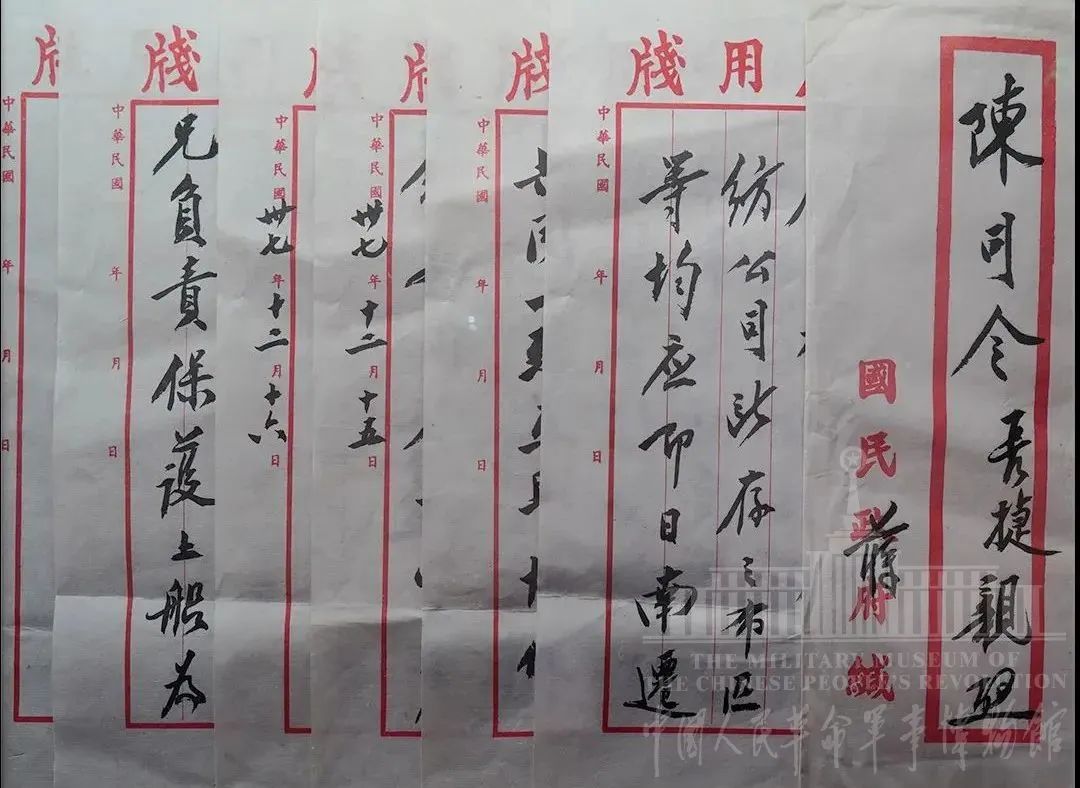 陳司令長捷親啟
國民政府緘
蔣
用牋
紡公司所存之布疋
等均应即日南遷
中華民國 年 月 日
牋
中華民國 年 月 日
中華民國卅七年十二月十五日
中華民國卅七年十二月十六日
牋
兄負責保護上船為
中華民國 年 月 日
中華民國 年 月 日
THE MILITARY MUSEUM OF
THE CHINESE PEOPLE'S REVOLUTION
中国人民革命军事博物館